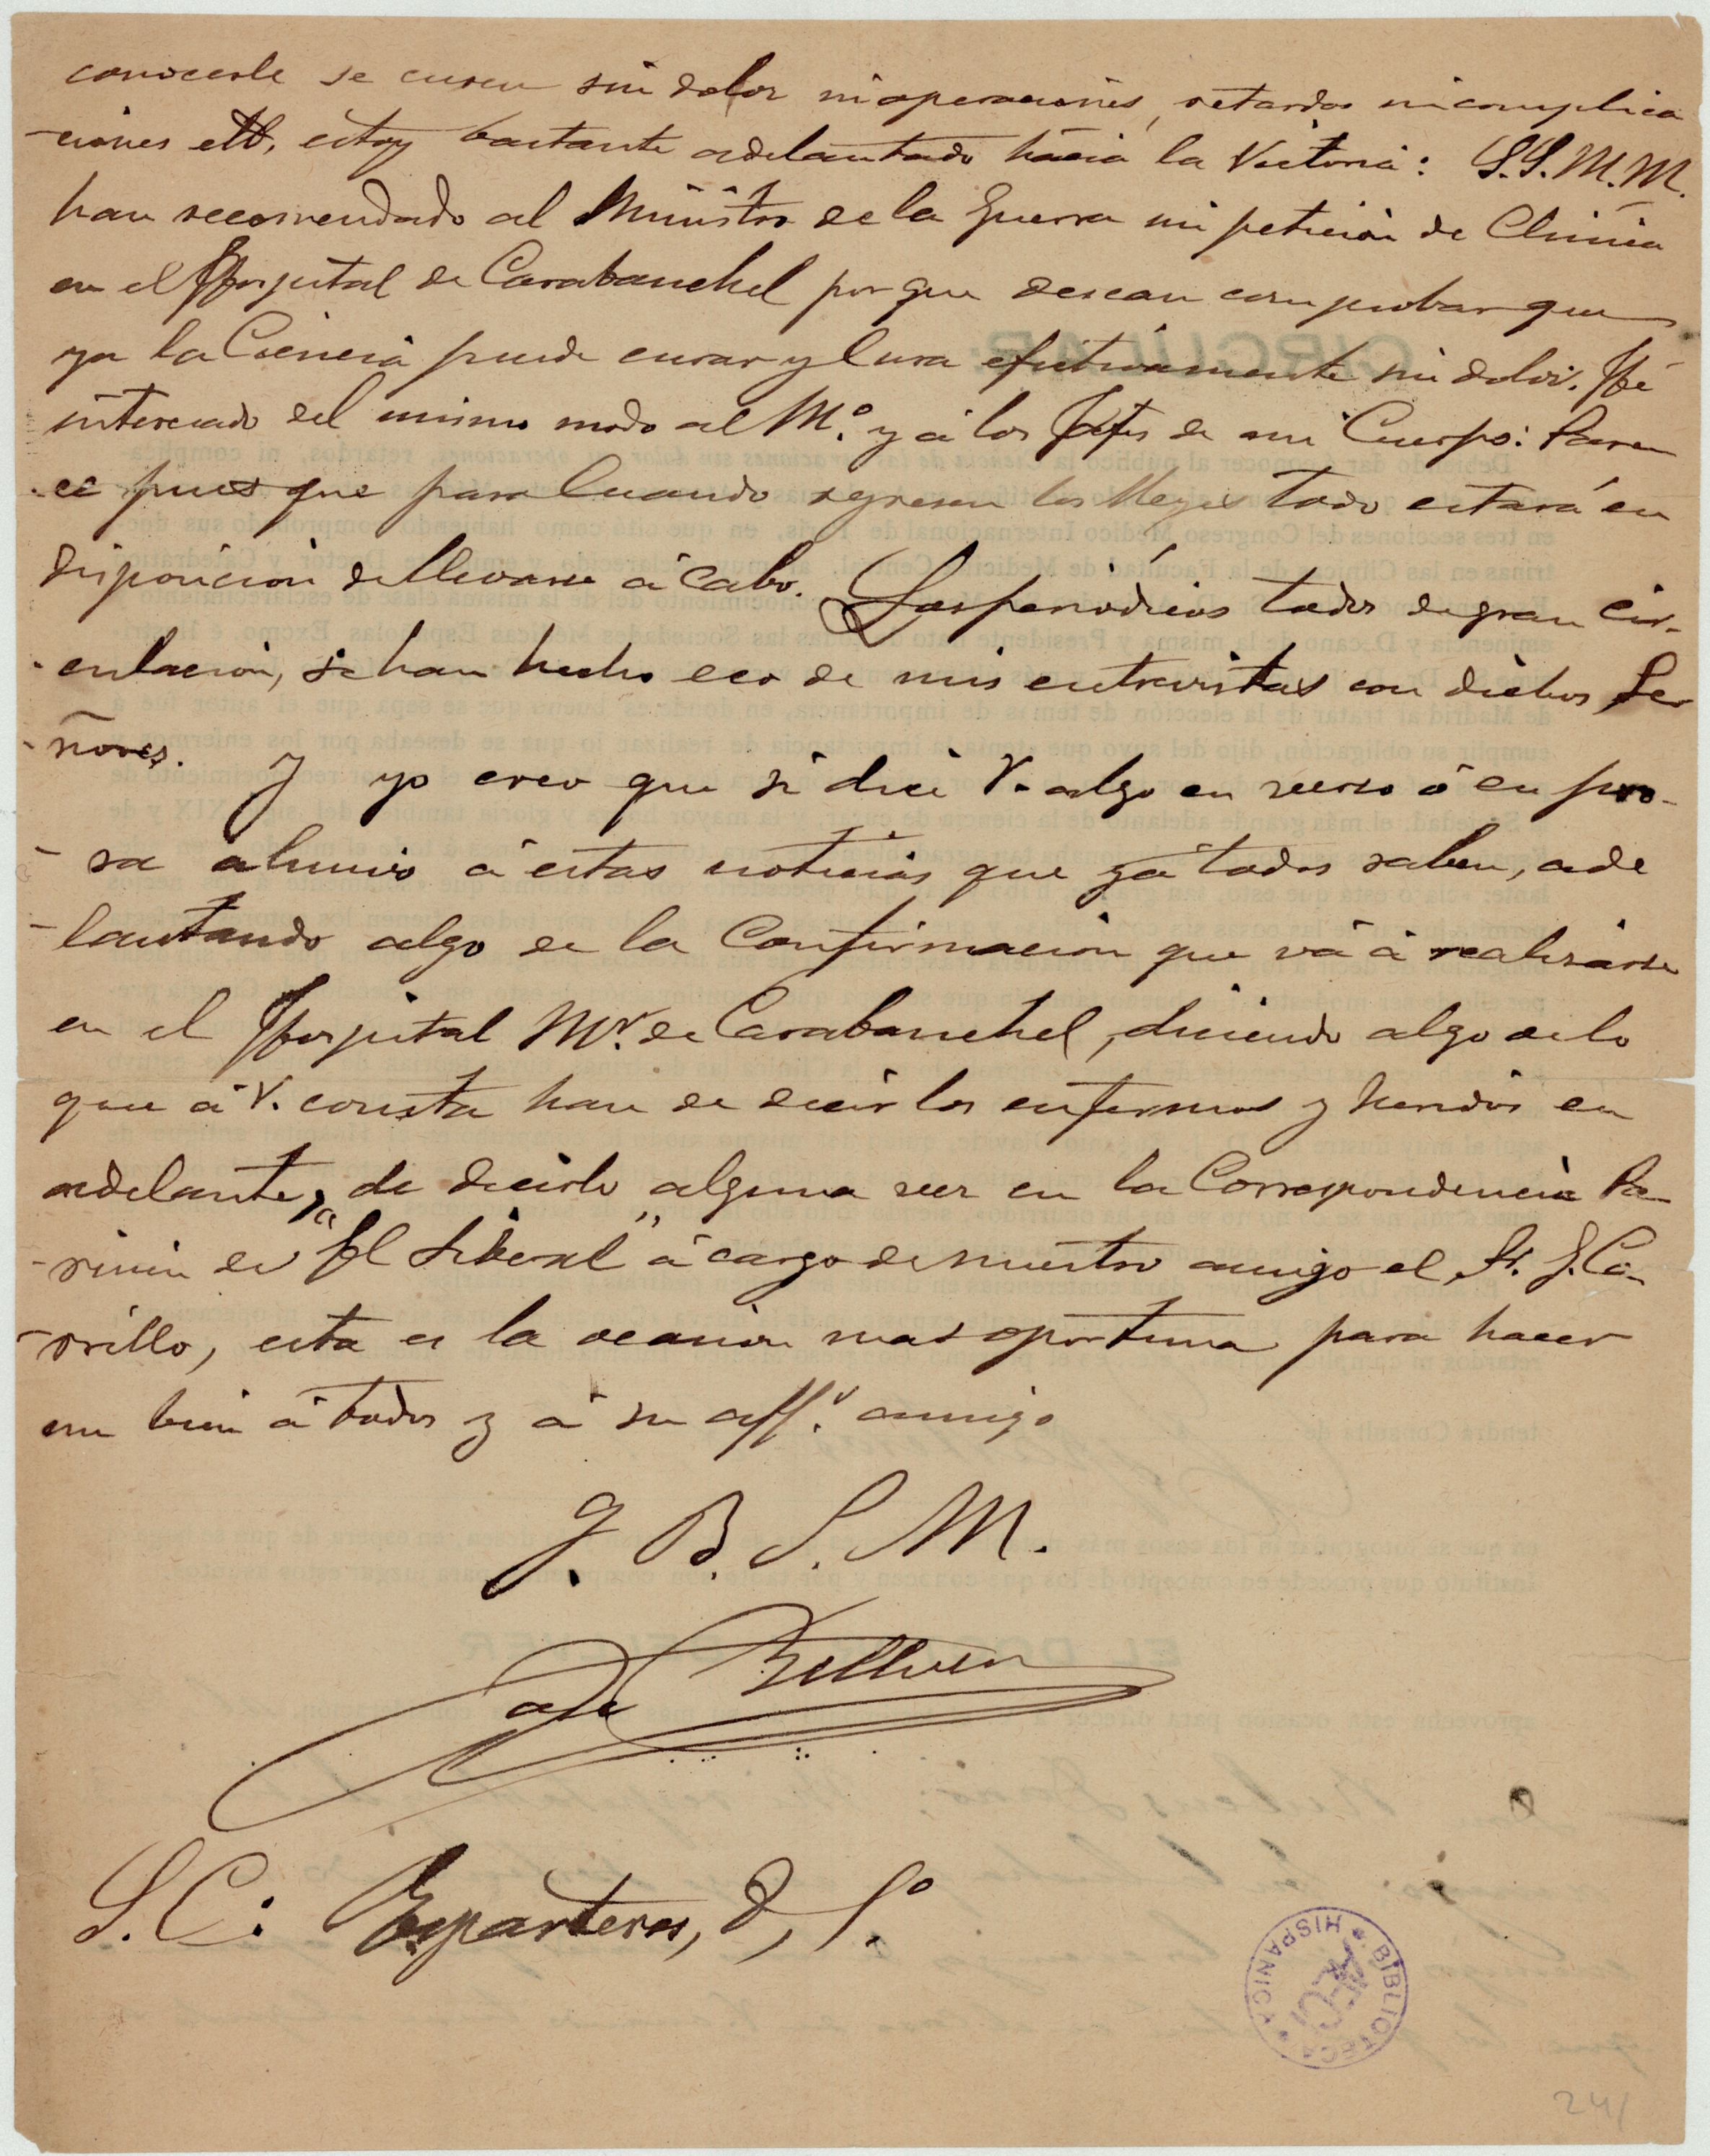 conocerle se curen sin dolor ni operaciones, retardos ni complica
-ciones ett, estoy bastante adelantado hácia la Victoria: S.S.M.M.
han recomendado al Ministro de la Guerra mi petición de Clinica
en el Hospital de Carabanchel por que desean comprobar que
ya la Ciencia puede curar y Cura efectivamente sin dolor. Hé
interesado del mismo modo al M.º y á los Jefes de mi Cuerpo: Pare
-ce pues que para Cuando regresen los Reyes todo estará en
disposicion de llevarse á Cabo. Los periódicos todos de gran cir-
-culacion, se han hecho eco de mis entrevistas con dichos Se-
-ñores. Y yo creo que si dice V. algo en verso ó en pro-
-sa alusivo á estas noticias que yá todos saben, ade
-lantando algo de la Confirmacion que vá á realizarse
en el Hospital Mr. de Carabanchel, diciendo algo de lo
que á V. consta han de decir los enfermos y heridos en
adelante, de decirlo alguna vez en la Correspondencia Pa-
-risien de "El Liberal" á cargo de nuestro amigo el Sr. G. Ca-
-rrillo, esta es la ocasion mas oportuna para hacer
un bien á todos y á su aff.º amigo
q. B. S. M.
de Bellver
S. C: Esparteros, 8, 1º
BIBLIOTECA * HISPANICA *
AECI
241